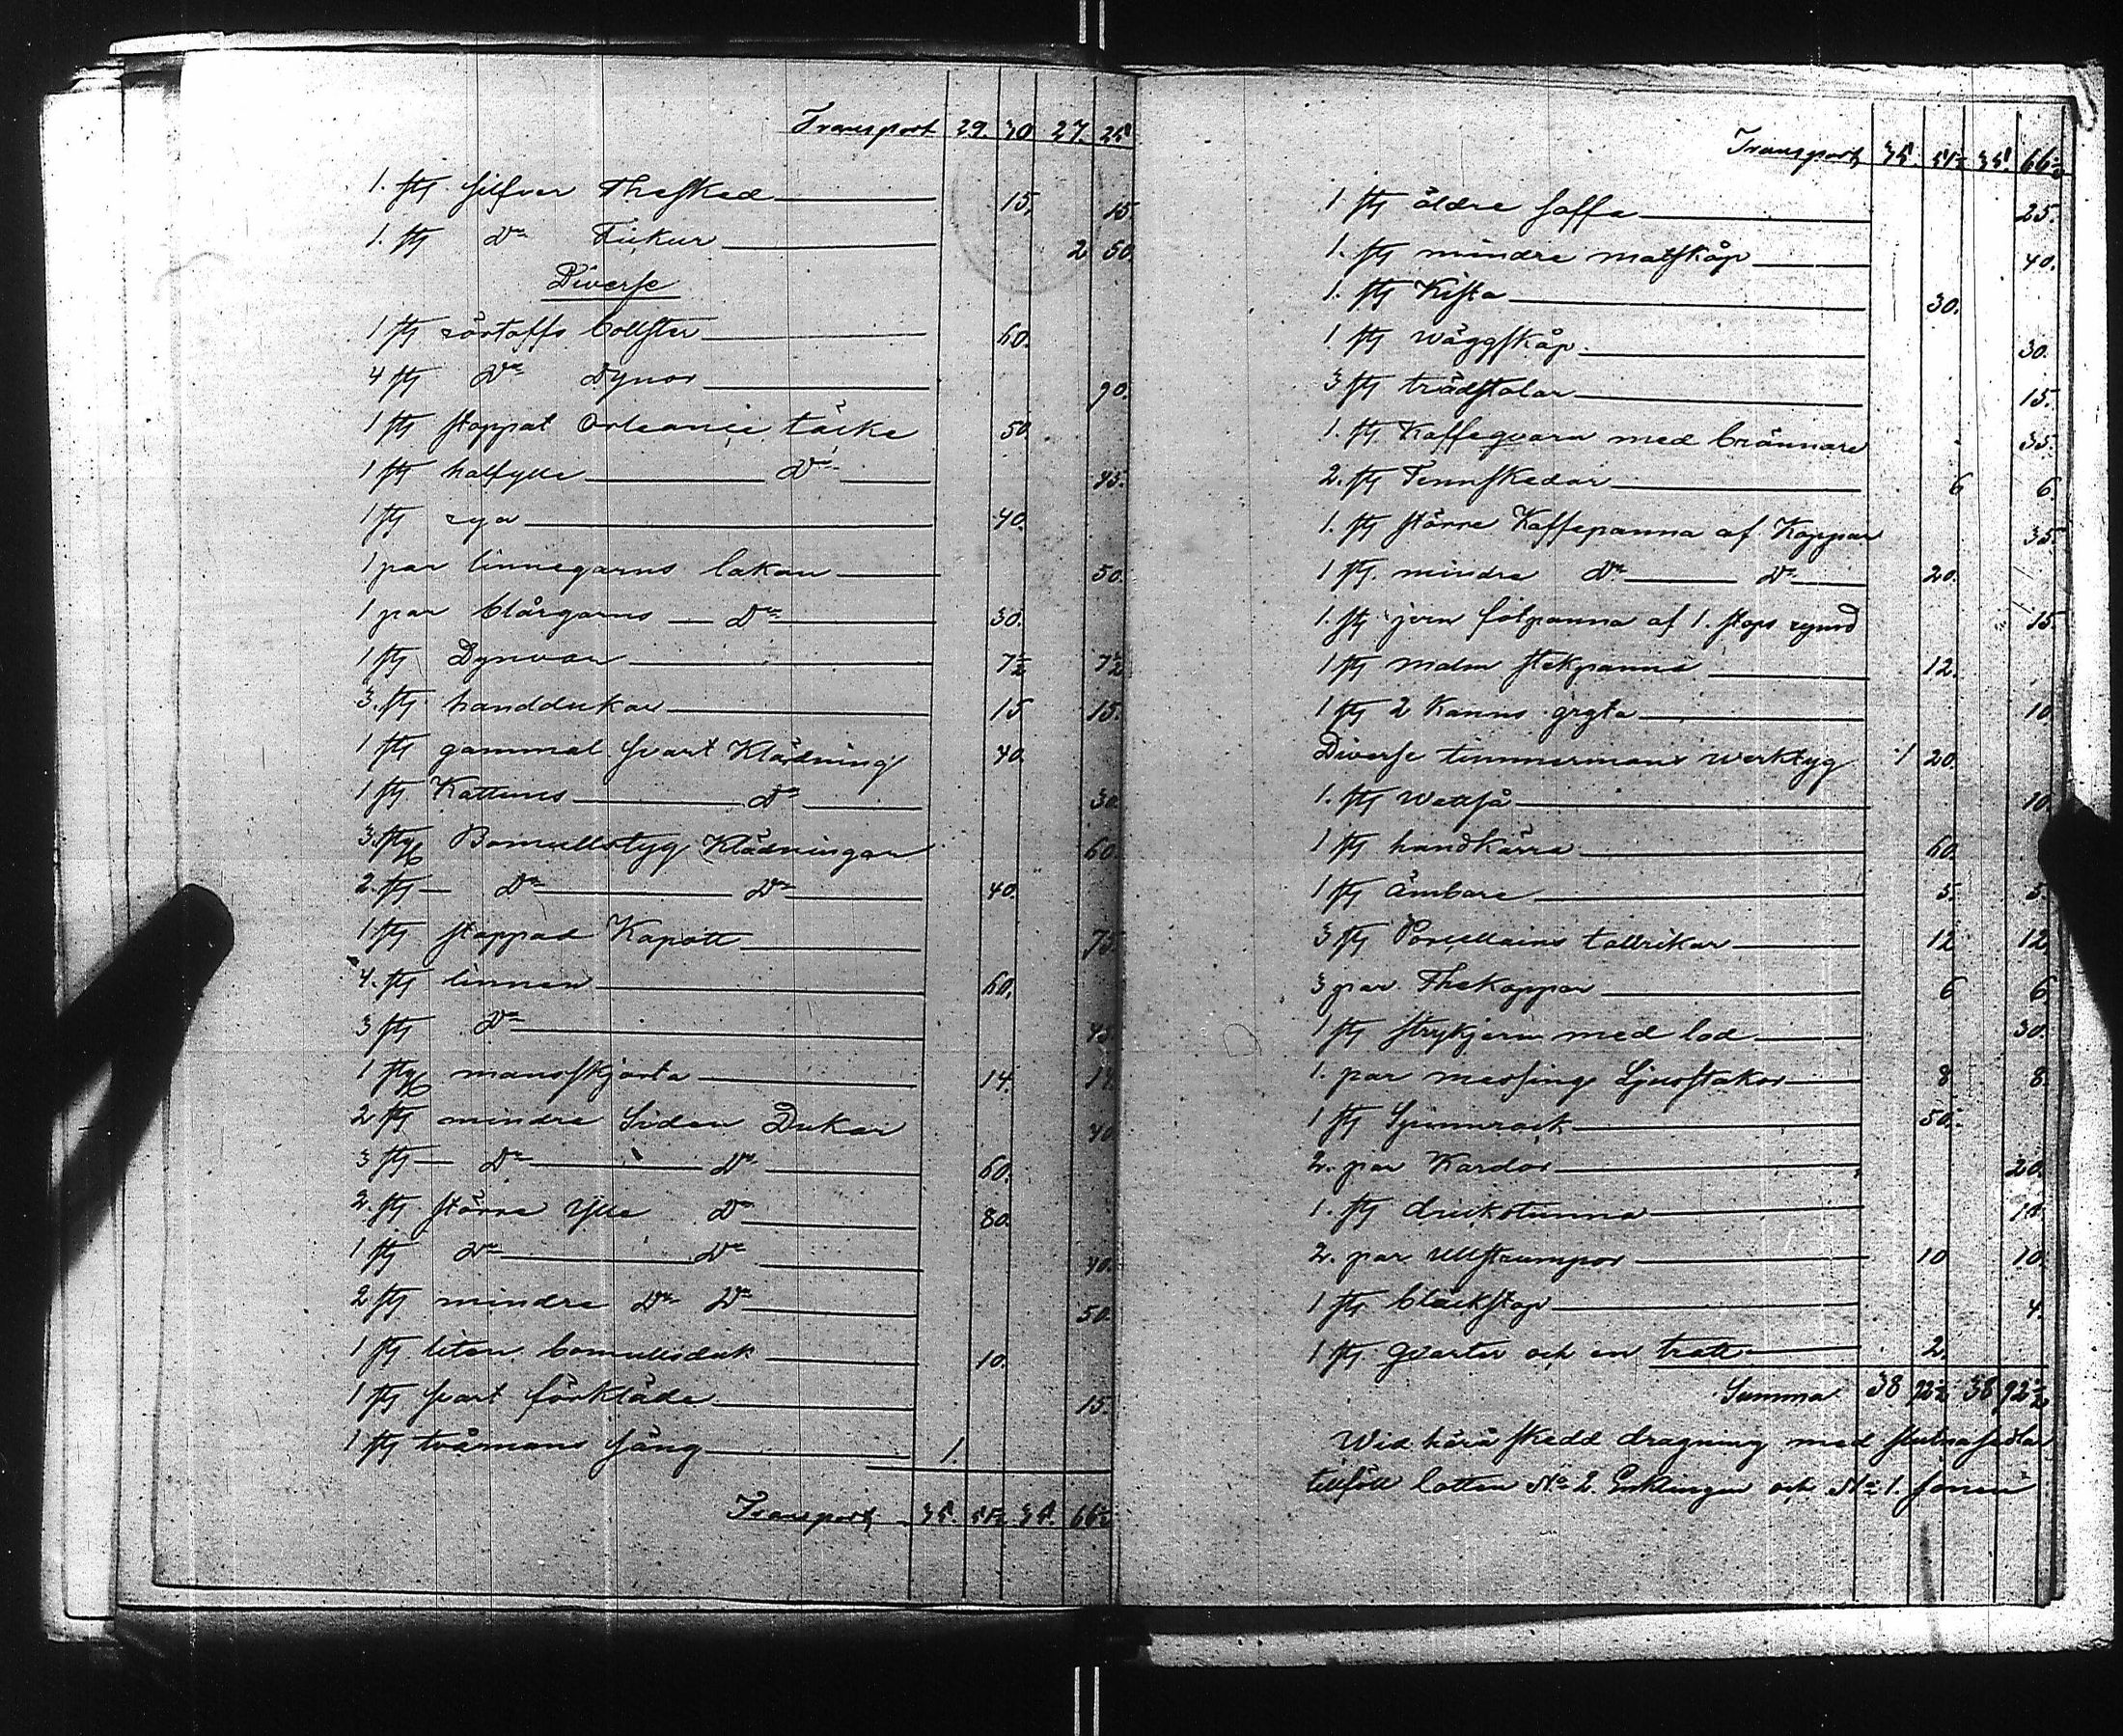 Transport 29. 30 27. 25
1. stj silfver Thesked 15. 15
1. stj Do Fickur 2 50
Diverse
1 stj rörtoffs bollster 60.
4 stj Do Dynor 90.
1 stj stoppat Orleance täcke 50
1 stj halfylle Do 45.
1 stj rya 40.
1 par linnegarns lakan 50.
1 par blårgarns Do 30.
1 stj Dynvar 7½ 7½
3. stj handdukar 15 15.
1 stj gammal svart Klädning 40
1 stj Kattuns Do 30
3. stj Bomullstyg Klädningar 60
2. stj Do Do 40.
1 stj stoppad Kapott 75
4. stj linnen 60.
3 stj Do 45.
1 stj mansskjorta 14.
2 stj mindre Siden Dukar 40
3 stj Do Do 60.
2. stj större Ylle Do 80.
1 stj Do Do 40.
2 stj mindre Do Do 50.
1 stj liten bomullsduk 10.
1 stj svart förkläde 15.
1 stj tvåmans säng 1.
Transport 35. 51½ 35. 66½
Transport 35. 51½ 35. 66½
1 stj äldre soffa 25.
1. stj mindre matskåp 40.
1. stj Kista 30.
1 stj wäggskåp 30.
3 stj trädstolar 15.
1. stj Kaffeqvarn med brännare 35.
2. stj Tennskedar 6 6
1. stj större Kaffepanna af Koppar 35
1 stj. mindre Do Do 20.
1. stj jern fotpanna af 1. stops rymd 15.
1 stj malm stekpanna 12.
1 stj 2 Kanns gryta 10
Diverse timmermans werktyg 1 20.
1. stj wattså 10.
1 stj handkärra 60.
1 stj ämbare 5. 5
3 stj Porcellains tallrikar 12 12
3 par Thekoppar 6 6.
1 stj strykjern med lod 30.
1. par messing Ljusstakor 8 8.
1 stj Spinnrock 50.
2. par Kardor 20.
1. stj drickstunna
2. par Ullstrumpor 10 10.
1 stj bläckstop 4.
1 stj qvarter och en tratt 2.
Summa 38 92½ 38 92½
Wid härå skedd dragning med slutna sedlar
tillföll lotten No 2. Enklingen och No 1. sonen